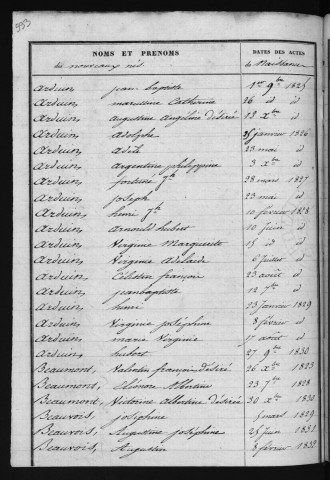 553
NOMS ET PRENOMS DATES DES ACTES
des nouveaux nés de Naissance
Arduin, jean baptiste 1er 9bre 1825
Arduin, marcelline Catherine 26 d d
Arduin, augustine Angéline désirée 13 Xbre d
Arduin, adolphe 25 janvier 1826
Arduin, adèle 23 mai d
Arduin, argentine philippine 3 Xbre d
Arduin, fortuné fs 28 mars 1827
Arduin, joseph 23 mai d
Arduin, henri fs 10 février 1828
Arduin, arnould hubert 10 juin d
Arduin, Virginie Marguerite 15 d d
Arduin, Virginie Adelaide 6 juillet d
Arduin, Célestin françois 23 août d
Arduin, jeanbaptiste 12 7bre d
Arduin, henri 23 janvier 1829
Arduin, Virginie joséphine 8 février d
Arduin, marie Virginie 17 août d
Arduin, hubert 27 9bre 1830
Beaumont, Valentin françois désiré 26 Xbre 1823
Beaumont, Eléonor Albertine 23 7bre 1828
Beaumont, Victorine Albertine désirée 30 Xbre 1830
Beauvois, joséphine 5 mars 1829
Beauvois, Augustine joséphine 25 juin 1831
Beauvois, Augustin 8 février 1832